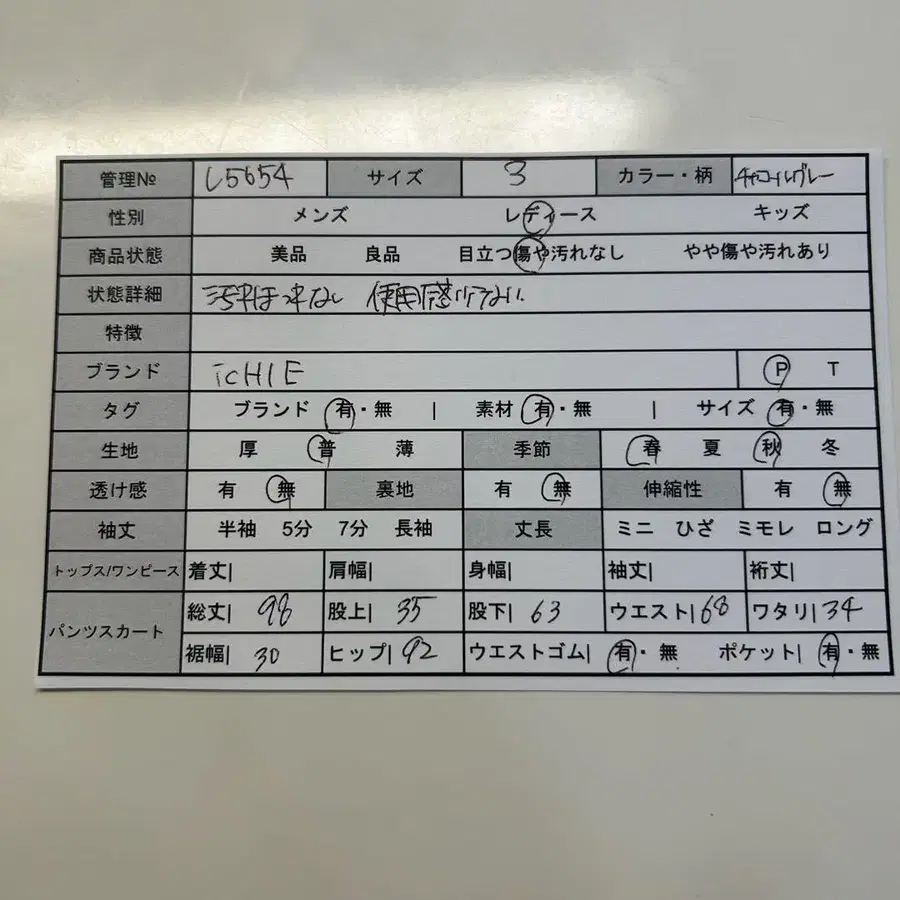 管理№ L5654 サイズ 3 カラー・柄 チャコールグレー
性別 メンズ レディース キッズ
商品状態 美品 良品 目立つ傷や汚れなし やや傷や汚れあり
状態詳細 汚れほつれなし 使用感少ない
特徴
ブランド icHIE P T
タグ ブランド 有・無 | 素材 有・無 | サイズ 有・無
生地 厚 普 薄 季節 春 夏 秋 冬
透け感 有 無 裏地 有 無 伸縮性 有 無
袖丈 半袖 5分 7分 長袖 丈長 ミニ ひざ ミモレ ロング
トップス/ワンピース 着丈| 肩幅| 身幅| 袖丈| 裄丈|
パンツスカート 総丈| 98 股上| 35 股下| 63 ウエスト| 68 ワタリ| 34
裾幅| 30 ヒップ| 92 ウエストゴム| 有・無 ポケット| 有・無